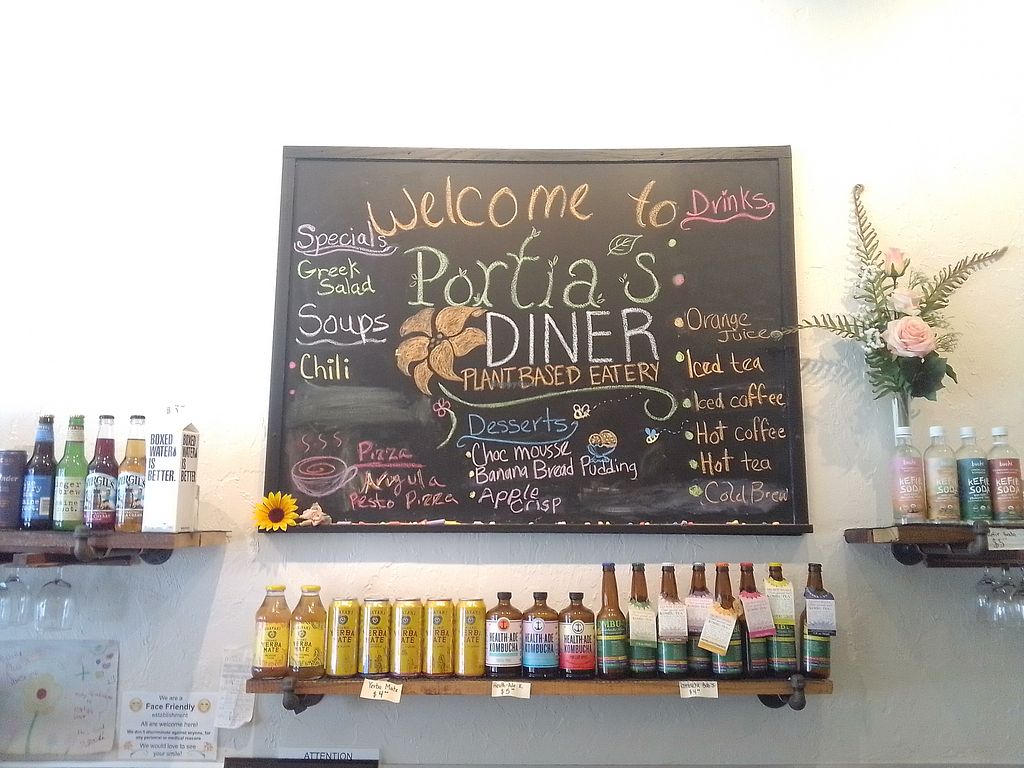 Welcome to
Portia's
DINER
PLANT BASED EATERY
Specials
Greek
Salad
Soups
Chili
Pizza
Arugula
Pesto Pizza
Desserts
Choc mousse
Banana Bread Pudding
Apple
Crisp
Drinks
Orange
Juice
Iced tea
Iced coffee
Hot coffee
Hot tea
Cold Brew
BOXED
WATER
IS
BETTER.
VIRGIL'S
KEFIR
SODA
KEFIR
SODA
KEFIR
SODA
KEFIR
SODA
$5
YERBA
MATE
HEALTH-ADE
KOMBUCHA
HEALTH-ADE
KOMBUCHA
HEALTH-ADE
KOMBUCHA
Yerba Mate
$4
$5
$4
We are a
Face Friendly
establishment
All are welcome here!
We don't discriminate against anyone, for
any personal or medical reasons
We would love to see
your smile!
ATTENTION